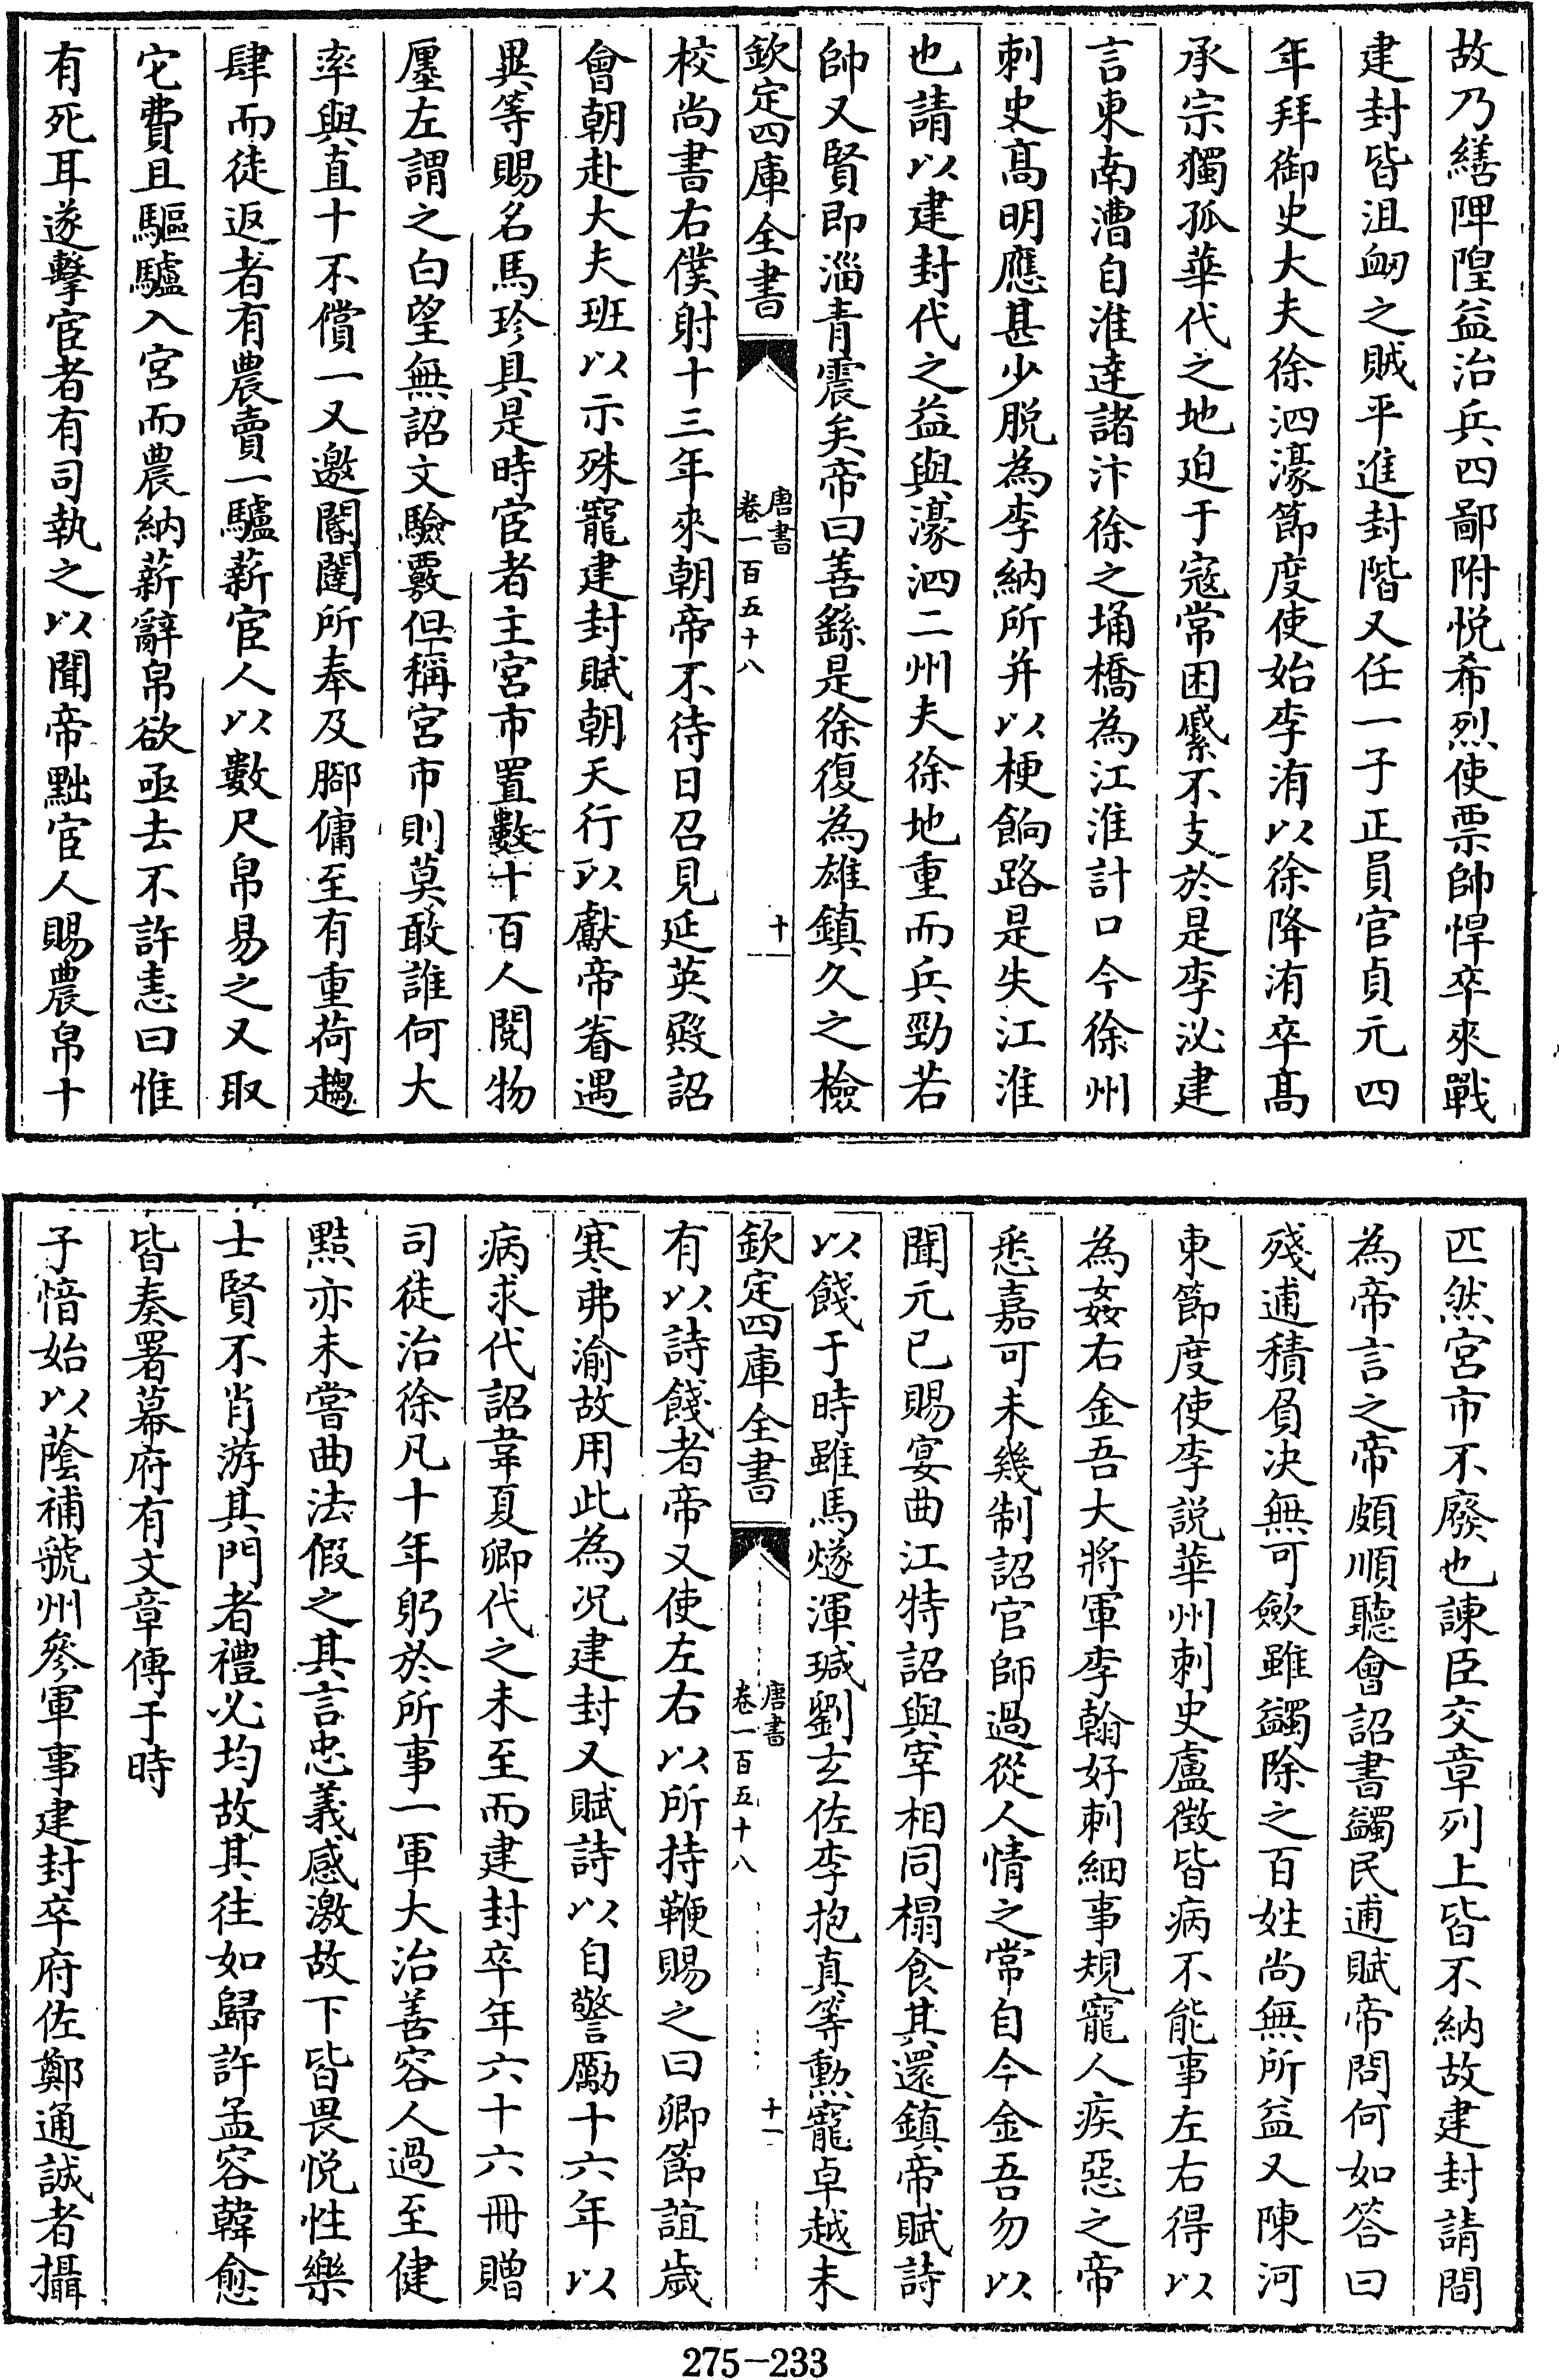 故乃繕陴隍益治兵四鄙附悦希烈使票帥悍卒來戰
建封皆沮衂之賊平進封階又任一子正員官貞元四
年拜御史大夫徐泗濠節度使始李洧以徐降洧卒髙
承宗獨孤華代之地迫于寇常困䠞不支於是李泌建
言東南漕自淮達諸汴徐之埇橋為江淮計口今徐州
刺史髙明應甚少脱為李納所并以梗餉路是失江淮
也請以建封代之益與濠泗二州夫徐地重而兵勁若
帥又賢即淄青震矣帝曰善繇是徐復為雄鎮久之檢
欽定四庫全書
唐書
卷一百五十八
十
校尚書右僕射十三年來朝帝不待日召見延英殿詔
會朝赴大夫班以示殊寵建封賦朝天行以獻帝眷遇
異等賜名馬珍具是時宦者主宮市置數十百人閱物
廛左謂之白望無詔文驗覈但稱宮市則莫敢誰何大
率與直十不償一又邀閽闥所奉及脚傭至有重荷趨
肆而徒返者有農賣一驢薪宦人以數尺帛易之又取
它費且驅驢入宮而農納薪辭帛欲亟去不許恚曰惟
有死耳遂擊宦者有司執之以聞帝黜宦人賜農帛十
匹然宮市不廢也諫臣交章列上皆不納故建封請間
為帝言之帝頗順聽會詔書蠲民逋賦帝問何如答曰
殘逋積負决無可歛雖蠲除之百姓尚無所益又陳河
東節度使李説華州刺史盧徴皆病不能事左右得以
為姦右金吾大將軍李翰好刺細事規寵人疾惡之帝
悉嘉可未幾制詔官師過從人情之常自今金吾勿以
聞元巳賜宴曲江特詔與宰相同榻食其還鎮帝賦詩
以餞于時雖馬燧渾瑊劉玄佐李抱真等勲寵卓越未
欽定四庫全書
唐書
卷一百五十八
十一
有以詩餞者帝又使左右以所持鞭賜之曰卿節誼歲
寒弗渝故用此為况建封又賦詩以自警勵十六年以
病求代詔韋夏卿代之未至而建封卒年六十六冊贈
司徒治徐凡十年躬於所事一軍大治善容人過至健
黠亦未嘗曲法假之其言忠義感激故下皆畏悦性樂
士賢不肖游其門者禮必均故其往如歸許孟容韓愈
皆奏署幕府有文章傳于時
子愔始以蔭補虢州參軍事建封卒府佐鄭通誠者攝
275-233